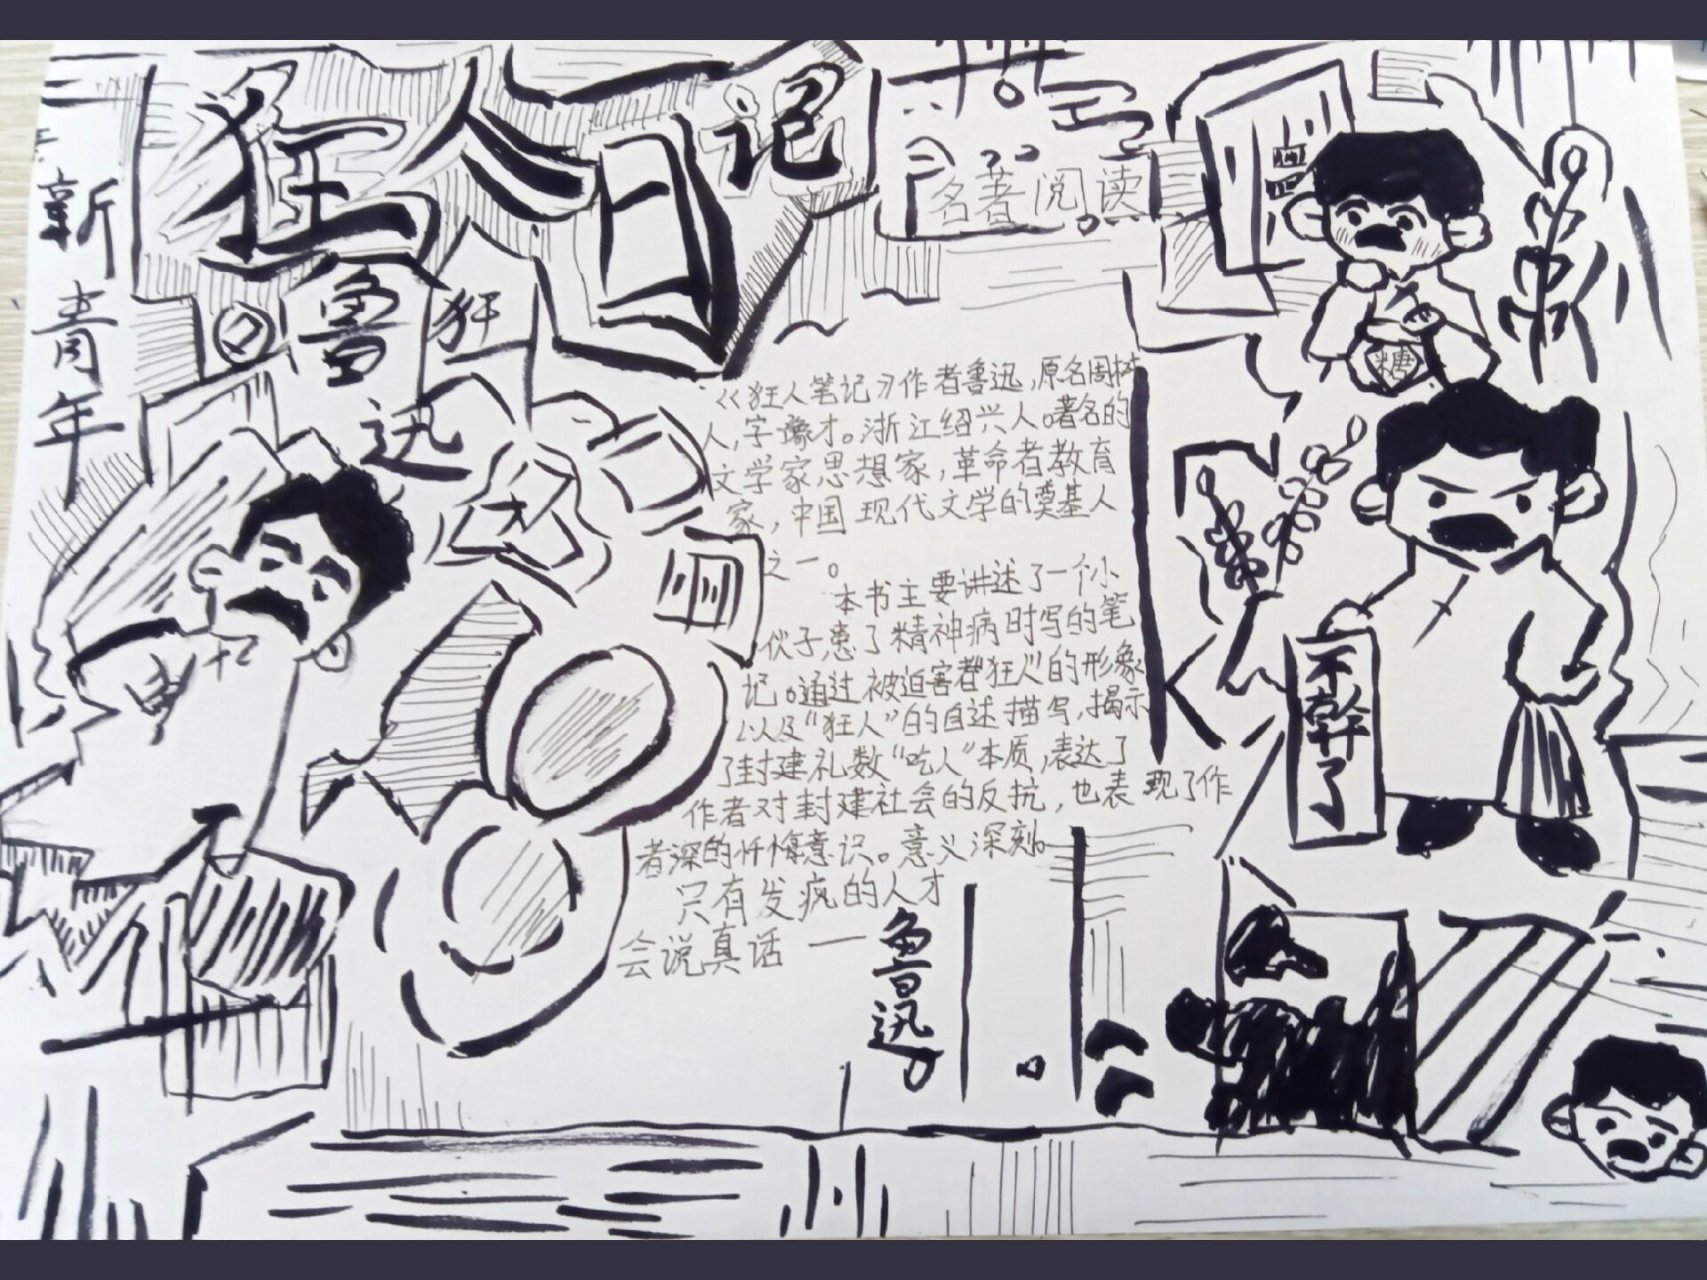 狂人日记
新青年
鲁迅
狂
名著阅读
《狂人笔记》作者鲁迅，原名周树
人，字豫才。浙江绍兴人。著名的
文学家思想家，革命者教育
家，中国现代文学的奠基人
之一。
本书主要讲述了一个小
伙子患了精神病时写的笔
记。通过被迫害者"狂人"的形象
以及"狂人"的自述描写，揭示
了封建礼数"吃人"本质，表达了
作者对封建社会的反抗，也表现了作
者深的忏悔意识。意义深刻。
只有发疯的人才
会说真话 —
鲁迅
糖
不幹了